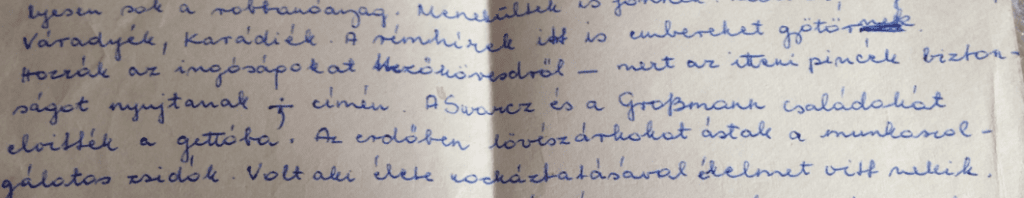 lyesen sok a robbanóanyag. Menekültek is
Váradyék, Karádiék. A rémhírek itt is embereket gyötör
Hozzák az ingóságokat Mezőkövesdről – mert az itteni pincék bizton-
ságot nyujtanak ; címén. A Swarcz és a Großmann családokát
elvitték a gettóba. Az erdőben lövészárkokat ástak a munkaszol-
gálatos zsidók. Volt aki élete kockáztatásával élelmet vitt nekik.